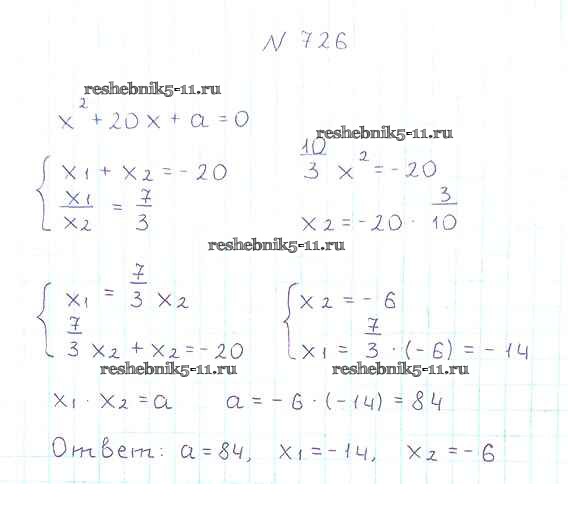 N 726
reshebnik5-11.ru
x² + 20x + a = 0
reshebnik5-11.ru
x1 + x2 = -20
10/3 x² = -20
x1/x2 = 7/3
x2 = -20 · 3/10
reshebnik5-11.ru
x1 = 7/3 x2
x2 = -6
7/3 x2 + x2 = -20
x1 = 7/3 · (-6) = -14
reshebnik5-11.ru
reshebnik5-11.ru
x1 · x2 = a
a = -6 · (-14) = 84
Ответ: a = 84, x1 = -14, x2 = -6